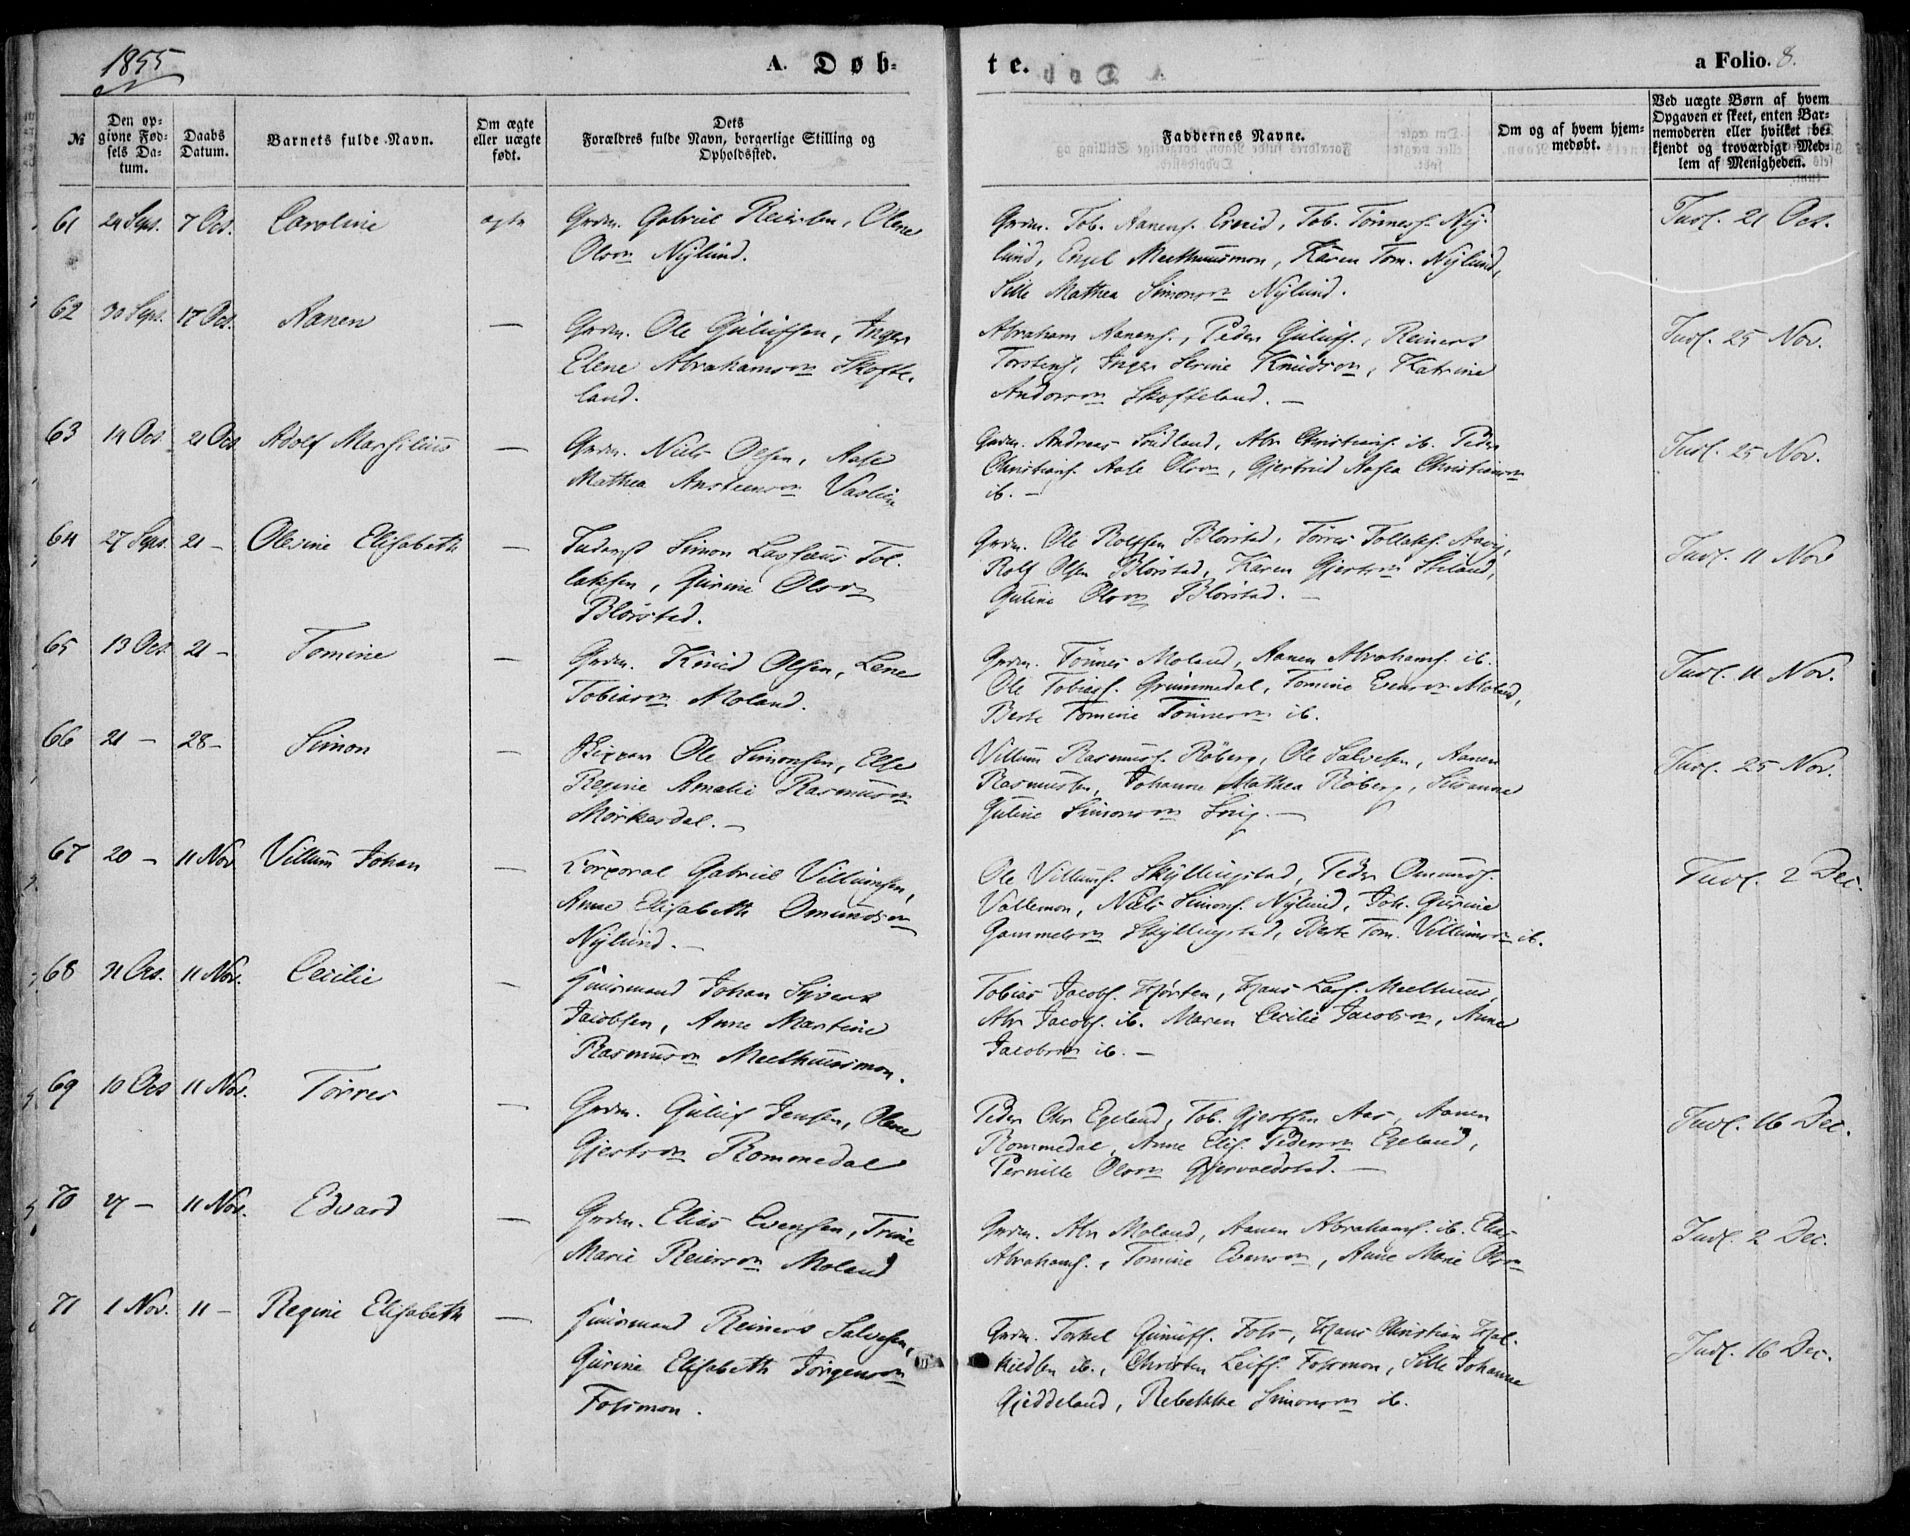 1855
A. Døb-
te.
a Folio. 8.
№
Den op-
givne Fød-
sels Da-
tum.
Daabs
Datum.
Barnets fulde Navn.
Om ægte
eller uægte
født.
Dets
Forældres fulde Navn, borgerlige Stilling og
Opholdssted.
Faddernes Navne.
Om og af hvem hjem-
medøbt.
Ved uægte Børn af hvem
Opgaven er skeet, enten Bar-
nemoderen eller hvilket be-
kjendt og troværdigt Med-
lem af Menigheden.
61 24 Sept. 7 Oct. Caroline ægte
Grdm. Gabriel Reiersen, Olene
Olsdn Nylund.
Grdm. Tob. Aanens. Tob. Tønnes. Ny-
lund, Engel Meelhuusmon, Karen Tom. Nylund,
Sille Mathea Simonsdn Nylund.
Indl. 21 Oct.
62 30 Sept. 17 Oct. Aanen —
Grdm. Ole Guliufsen, Inger
Elene Abrahamsdn Skofte-
land.
Abraham Aanens., Peder Guliufs., Reinert
Torstens, Inger Serine Knudsdn, Katrine
Andersdn Skofteland. —
Indl. 25 Nov.
63 14 Oct. 21 Oct. Adolf Marsilius —
Grdm. Niels Olsen, Aase
Mathea Anstensdn
Grdm. Andreas Abr. Christians. ib. Peder
Christians. Aale Olsdn, Gjertrud Aasea Christiansdn
ib. —
Indl. 25 Nov.
64 27 Sept. 21 — Olevine Elisabeth —
Inderst Simon Tol-
laksen, Gurine Olsdn
Blørstad.
Grdm. Ole Rolfsen Blørstad, Tørres Tollaks.
Rolf Olsen Blørstad, Karen Gjertsdn
Guline Olsdn Blørstad. —
Indl. 11 Nov
65 13 Oct. 21 — Tomine —
Grdm. Knud Olsen, Lene
Tobiasdn Moland.
Grdm. Tønnes Moland, Aanen Abrahams. ib.
Ole Tobias. Grummedal, Tomine Evensdn Moland,
Berte Tomine Tønnesdn ib.
Indl. 11 Nov.
66 21 — 28 — Simon —
Skipper Ole Simonsen, Else
Regine Amalie Rasmusdn
Mørkesdal. —
Villum Rasmus. Røberg, Ole Salvesen, Aanen
Rasmusen, Johanne Mathea Røberg, Susanne
Guline Simonsdn —
Indl. 25 Nov.
67 20 — 11 Nov Villum Johan —
Korporal Gabriel Villumsen,
Anne Elisabeth Omundsdn
Nylund. —
Ole Villums. Skyllingstad, Peder Omunds.
Vollemon, Niels Simons. Nylund, Joh. Gurine
Gammelsdn Skyllingstad, Berte Tom. Villumsdn ib.
Indl. 2 Dec.
68 31 Oct. 11 Nov. Cecilie —
Huusmand Johan Syvert
Jacobsen, Anne Martine
Rasmusdn Meelhuusmon.
Tobias Jacobs. Hjorten, Hans Lars. Meelhuus,
Abr Jacobs. ib. Maren Cecilie Jacobsdn, Anne
Jacobsdn ib. —
69 10 Oct 11 Nov. Tørres —
Grdm. Guliuf Jensen, Olene
Gjertsdn Rommedal
Peder Chr Egeland, Tob. Gjertsen Aas, Aanen
Rommedal, Anne Elis. Pedersdn Egeland,
Pernille Olsdn Gjervoldstad. —
Indl. 16 Dec.
70 27 — 11 Nov. Edvard —
Grdm. Elias Evensen, Trine
Marie Reiersdn Moland
Grdm. Abr Moland, Aanen Abrahams. ib. Elias
Abrahams., Tomine Evensdn, Anne Marie Olsdn
Indl. 2 Dec.
71 1 Nov. 11 — Regine Elisabeth —
Huusmand Reinert Salvesen,
Gurine Elisabeth Jørgensdn
Fossmon.
Grdm. Torkel Gunufs. Foss, Hans Christian
ib., Christen Leifs. Fossmon, Sille Johanne
Gjeddeland, Rebekke Simonsdn ib.
Indl. 16 Dec.